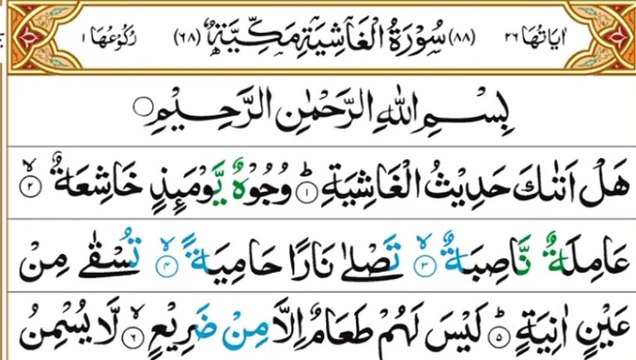 اٰیَاتُهَا ٢٦ (٨٨) سُوْرَةُ الْغَاشِیَةِ مَكِّیَّةٌ (٦٨) رُكُوْعُهَا ١
بِسْمِ اللّٰهِ الرَّحْمٰنِ الرَّحِیْمِ
هَلْ اَتٰىكَ حَدِیْثُ الْغَاشِیَةِ ؕ﴿١﴾ وُجُوْهٌ یَّوْمَىِٕذٍ خَاشِعَةٌ ۙ﴿٢﴾
عَامِلَةٌ نَّاصِبَةٌ ۙ﴿٣﴾ تَصْلٰى نَارًا حَامِیَةً ۙ﴿٤﴾ تُسْقٰى مِنْ
عَیْنٍ اٰنِیَةٍ ؕ﴿٥﴾ لَیْسَ لَهُمْ طَعَامٌ اِلَّا مِنْ ضَرِیْعٍ ۙ﴿٦﴾ لَّا یُسْمِنُ